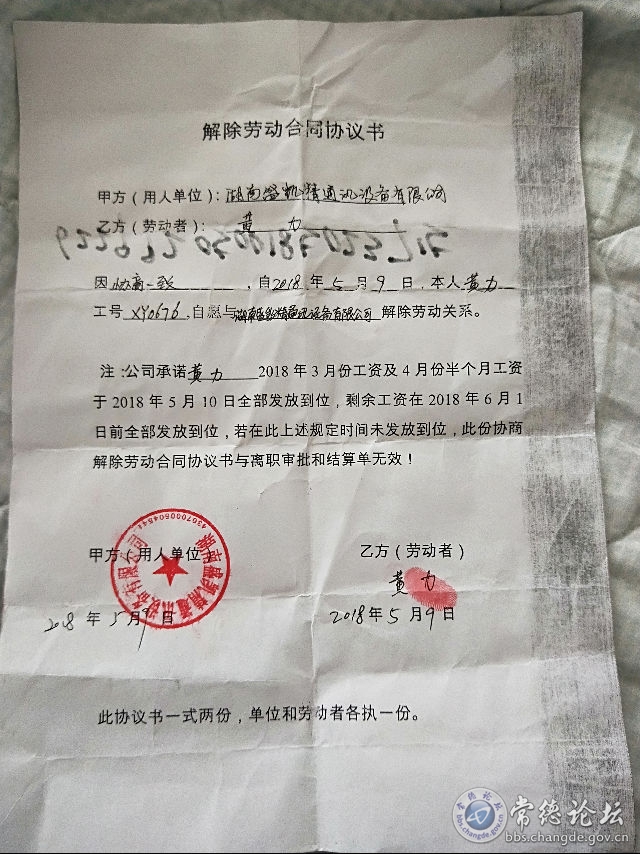 解除劳动合同协议书
甲方（用人单位）：湖南盛凯精通讯设备有限公司
乙方（劳动者）：黄力
因协商一致，自2018年5月9日，本人黄力
工号XY0676,自愿与湖南盛凯精通讯设备有限公司解除劳动关系。
注：公司承诺黄力2018年3月份工资及4月份半个月工资
于2018年5月10日全部发放到位，剩余工资在2018年6月1
日前全部发放到位，若在此上述规定时间未发放到位，此份协商
解除劳动合同协议书与离职审批和结算单无效！
甲方（用人单位）
乙方（劳动者）
黄力
2018年5月9日
2018年5月9日
此协议书一式两份，单位和劳动者各执一份。
常德论坛
bbs.changde.gov.cn